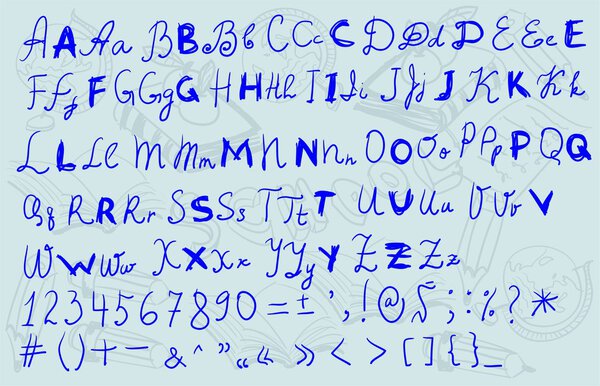 A A A a B B B b C C c C D D d D E E e E
F F f F G G g G H H H h I I I i J J j J K K K k
L L L l M M m M N N N n O O O o P P p P Q Q
Q q R R R r S S S s T T t T U U U u V V v V
W W W w X X X x Y Y y Y Z Z Z z
1 2 3 4 5 6 7 8 9 0 = ± ' , ! @ § ; : % ? *
# ( ) + − & ^ ” “ « » < > [ ] { } _